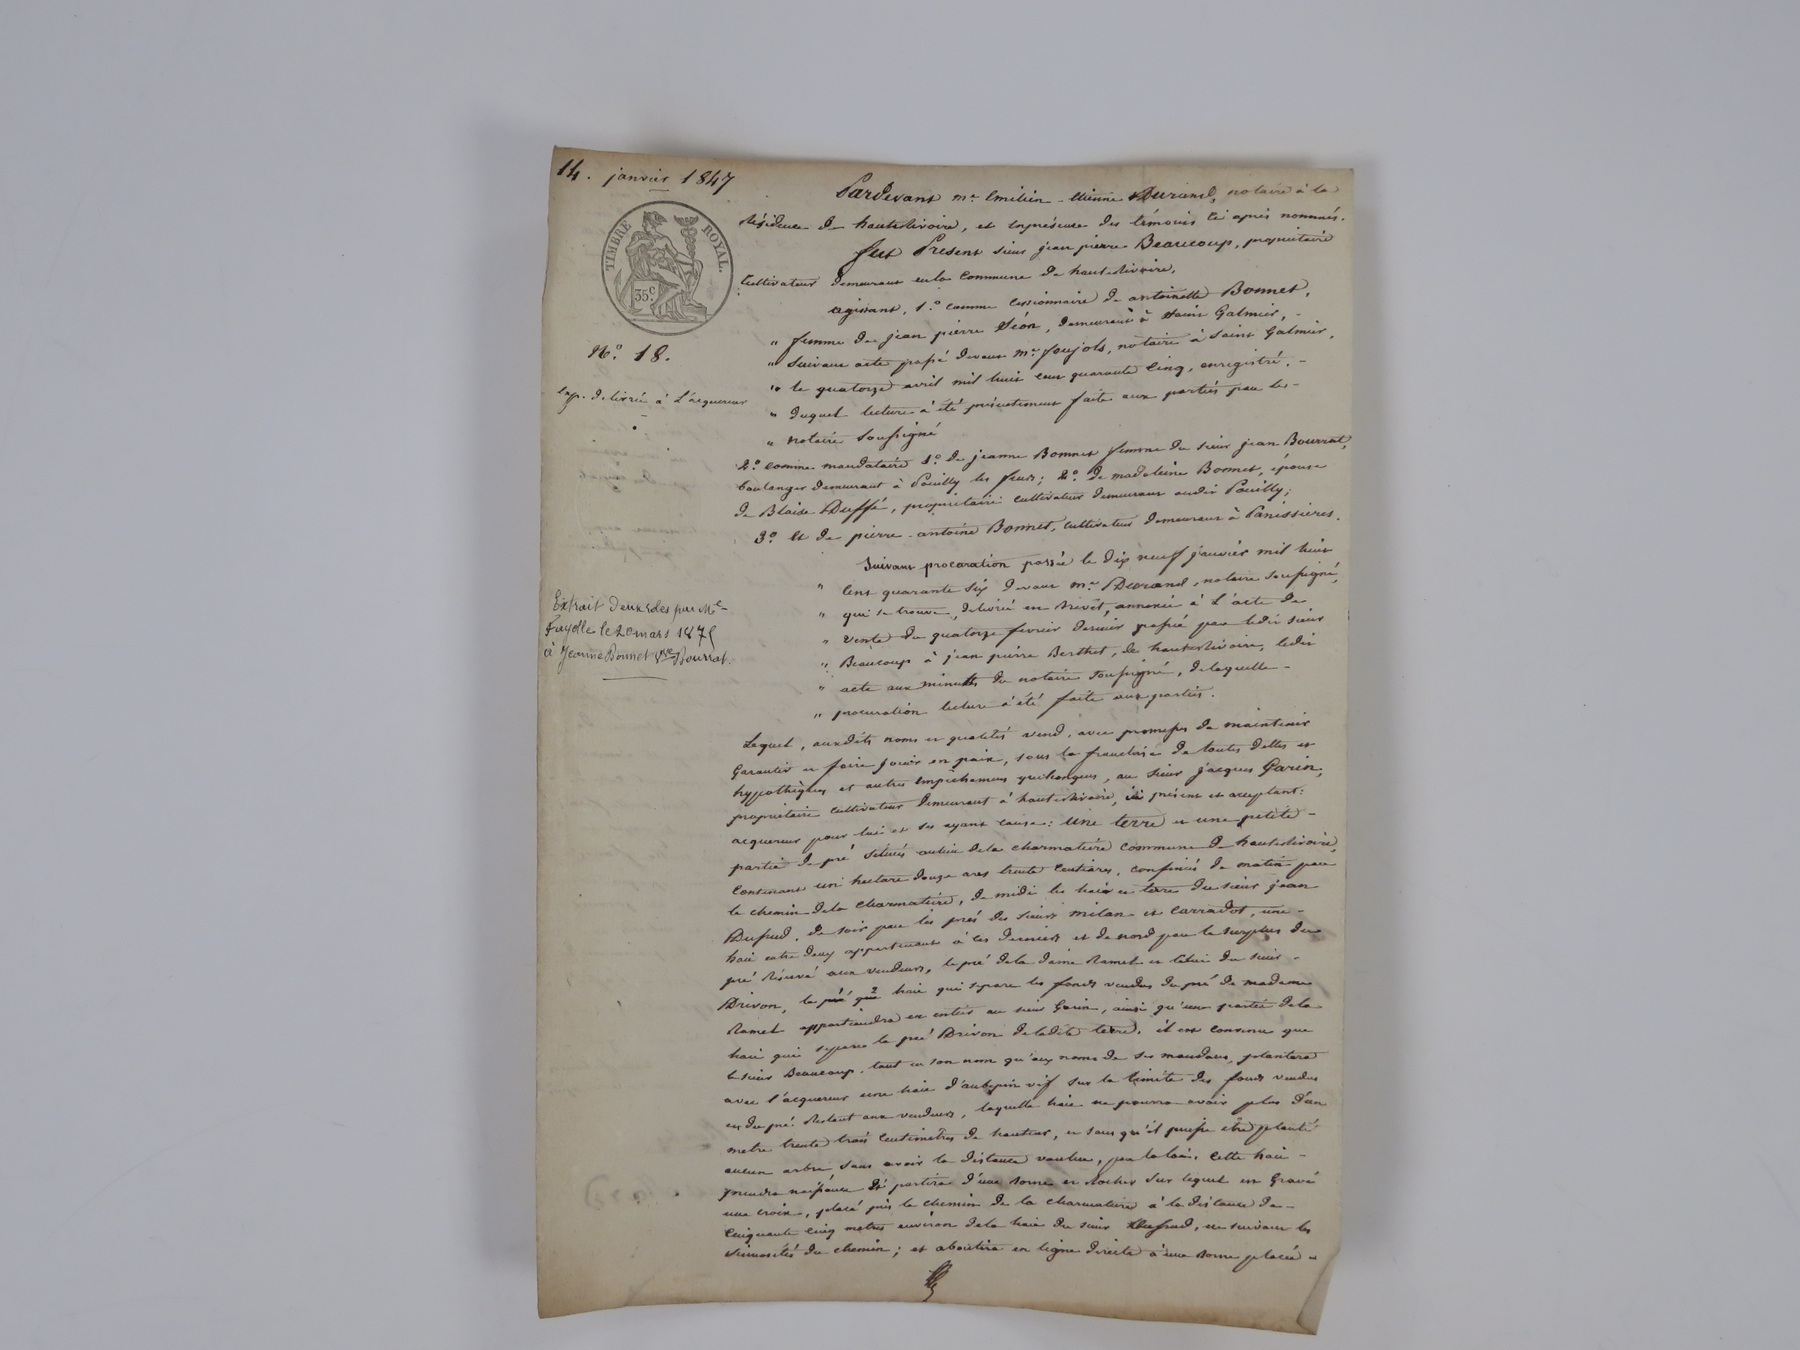 14. janvier 1847
TIMBRE ROYAL.
35c
No. 18.
exp. delivrée à l'acquereur
Extrait deux rôles par Me
Freydlle le 20 mars 1875
à Jeanne Bonnet Vve Bourrat.
Pardevant me Emilien-Etienne Durand, notaire à la
Résidence de hauterivoire, et en présence des témoins ci après nommés.
fut Present sieur jean pierre Beaucoup, propriétaire
Cultivateur demeurant en la Commune de hauterivoire,
agissant, 1.o comme Cessionnaire de antoinette Bonnet,
" femme de jean pierre Séon, demeurant à Saint Galmier, -
" Suivant acte passé devant me Joujols, notaire à Saint Galmier,
" le quatorze avril mil huit cent quarante Cinq, enregistré. -
" duquel lecture a été présentement faite aux parties par le -
" notaire Soussigné
2.o comme mandataire 1.o de jeanne Bonnet femme du sieur jean Bourrat,
boulanger demeurant à Pouilly les feurs; 2.o de madeleine Bonnet, épouse
de Blaise Duffé, propriétaire cultivateur demeurant audit Pouilly;
3.o et de pierre-antoine Bonnet, cultivateur demeurant à Panissieres.
Suivant procuration passée le dix neuf janvier mil huit
" Cent quarante Six devant me Durand, notaire soussigné,
" qui se trouve, delivré en brevet, annexée à l'acte de
" vente du quatorze fevrier dernier passé par ledit sieur
" Beaucoup à jean pierre Berthet, de hauterivoire, ledit
" acte aux minutes du notaire soussigné, de laquelle -
" procuration lecture a été faite aux parties.
Lequel, auxdits noms et qualités vend, avec promesses de maintenir
Garantir et faire jouir en paix, sous la franchise de toutes dettes et
hypothèques et autres empêchemens quelconques, au sieur jacques Garin,
propriétaire cultivateur demeurant à hauterivoire, ici présent et acceptant:
acquereur pour lui et ses ayant cause: une terre et une petite -
partie de pré situés au lieu de la charmatiere commune de hauterivoire,
Contenant un hectare douze ares trente Centiares, confinés de matin par
le chemin de la Charmatiere, de midi les haie et terre du sieur jean
Dufud, de soir par les prés des sieurs milan et Carradot, une -
haie entre deux appartenant à ces derniers et de nord par le surplus du
pré Réservé aux vendeurs, le pré de la dame Ramel et celui du sieur -
Drivon, le haie qui separe les fonds vendus du pré de madame
Ramel appartiendra en entier au sieur Garin, ainsi qu'une partie de la
haie qui separe le pré Drivon de ladite terre. il est convenu que
le sieur Beaucoup, tant en son nom qu'aux noms de ses mandans, plantera
avec l'acquereur une haie d'aubepin vif sur la limite des fonds vendus
et du pré Restant aux vendeurs, laquelle haie ne pourra avoir plus d'un
metre trente trois Centimetres de hauteur, et sans qu'il puisse être planté
aucun arbre sans avoir la distance voulue, par la loi. Cette haie -
prendra naissance à partir d'une borne en Rocher sur lequel est Gravé
une croix, placé près le chemin de la charmatiere à la distance de -
Cinquante Cinq metres environ de la haie du sieur Dufud, en suivant les
Sinuosités du chemin; et aboutira en ligne directe à une borne placée